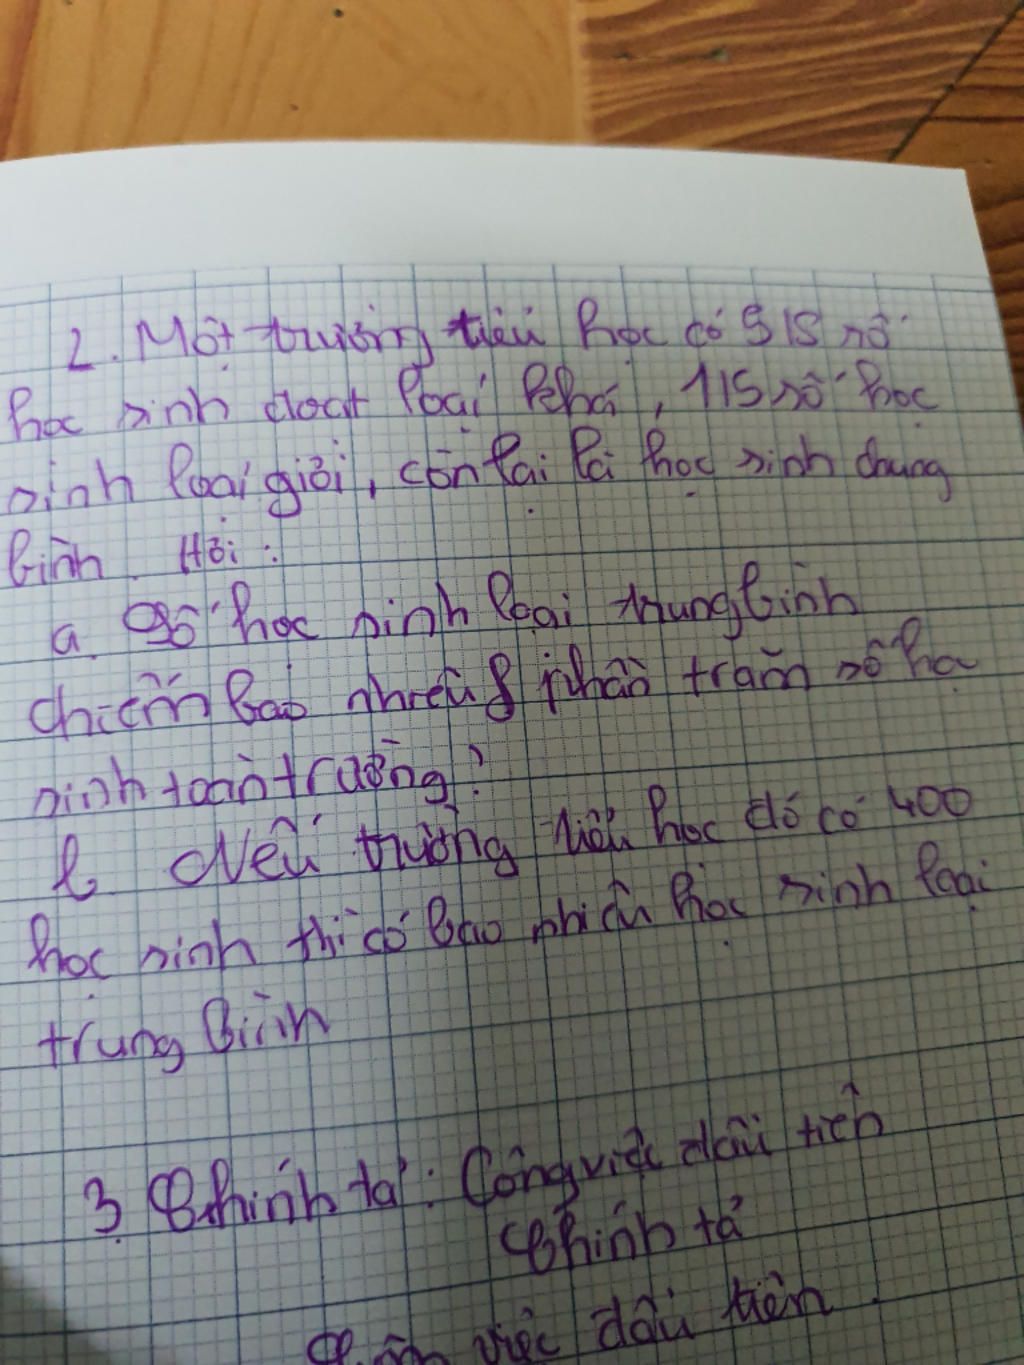 2. Một trường tiểu học có 3/5 số
học sinh đoạt loại khá, 1/5 số học
sinh loại giỏi, còn lại là học sinh chung
bình. Hỏi:
a. Số học sinh loại trung bình
chiếm bao nhiêu phần trăm số họ
sinh toàn trường?
b Nếu trường tiểu học đó có 400
học sinh thì có bao nhiêu học sinh loại
trung bình
3. Chính tả: Công việc đầu tiên
Chính tả
việc đầu tiên